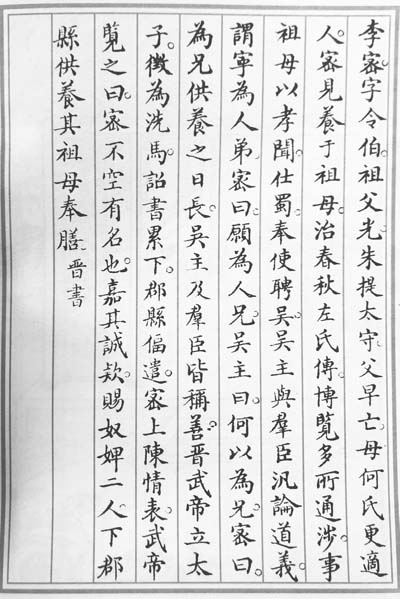 李密字令伯。祖父光朱提太守。父早亡。母何氏更適
人。密見養于祖母。治春秋左氏傳。博覽多所通涉。事
祖母以孝聞。仕蜀。奉使聘吳。吳主與羣臣汎論道義。
謂寧為人弟。密曰。願為人兄。吳主曰。何以為兄。密曰。
為兄供養之日長。吳主及羣臣皆稱善。晉武帝立太
子。徵為洗馬。詔書累下。郡縣偪遣。密上陳情表。武帝
覽之曰。密不空有名也。嘉其誠款。賜奴婢二人。下郡
縣供養其祖母奉膳。晉書